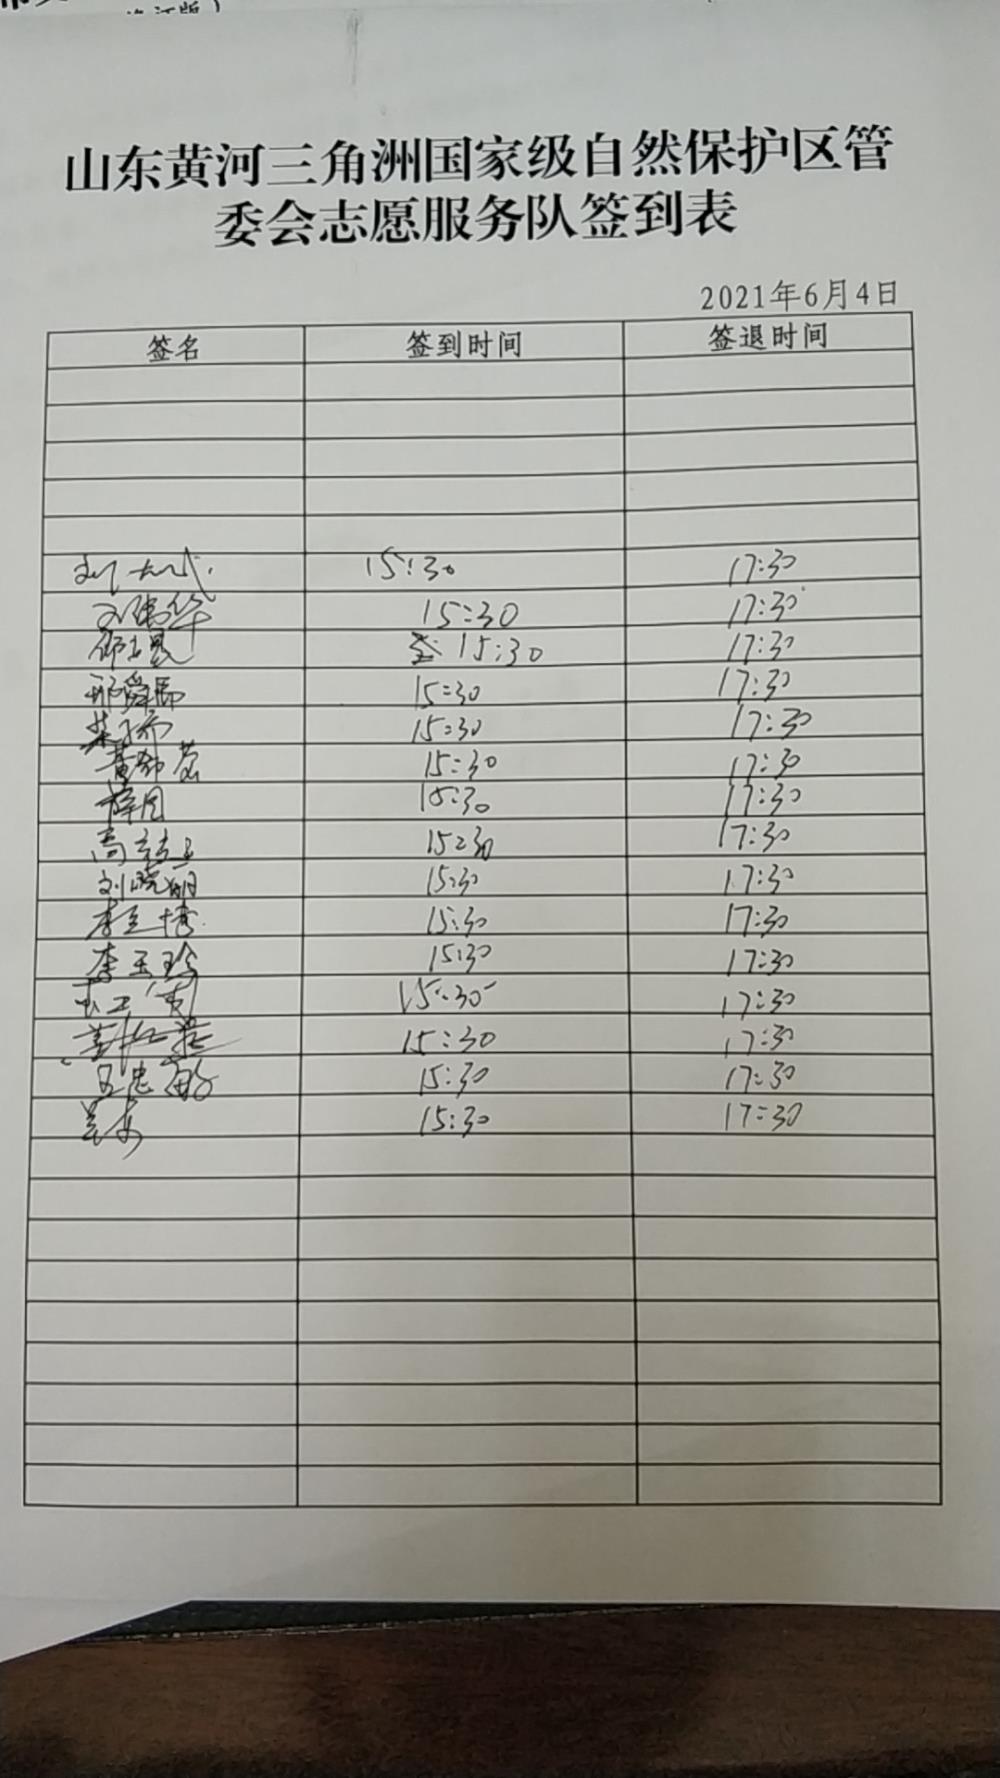 山东黄河三角洲国家级自然保护区管
委会志愿服务队签到表
2021年6月4日
签名 签到时间 签退时间
15:30 17:30
刘伟华 15:30 17:30
15:30 17:30
邢舜禹 15:30 17:30
15:30 17:30
15:30 17:30
薛周 15:30 17:30
高立玉 15:30 17:30
刘晓丽 15:30 17:30
李立博 15:30 17:30
李玉玲 15:30 17:30
15:30 17:30
15:30 17:30
王忠敏 15:30 17:30
15:30 17:30